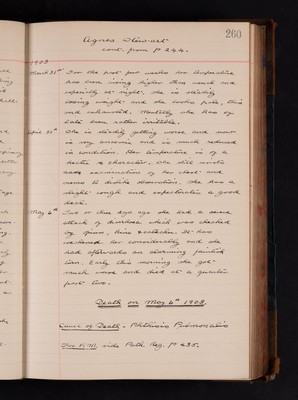 260
Agnes Stewart
cont. from P 244.
1903
March 31st For the past four weeks her temperature
has been rising higher than usual and
especially at night. She is steadily
losing weight and she looks pale, thin
and exhausted. Mentally she has of
late been rather irritable.
April 30th She is steadily getting worse and now
is very anaemic and is much reduced
in condition. Her temperature is of a
hectic character. She still resists
examination of her chest and
seems to dislike observation. She has a
slight cough and expectorates a good
deal.
May 6th Two or three days ago she had a severe
attack of diarrhoea which was checked
by opium, It has
weakened her considerably and she
had afterwards an alarming fainting
turn. Early this morning she got
much worse and died at a quarter
past two.
Death on May 6th 1903.
Cause of Death - Phthisis Pulmonalis
For P.M. vide Path. Reg. P 435.